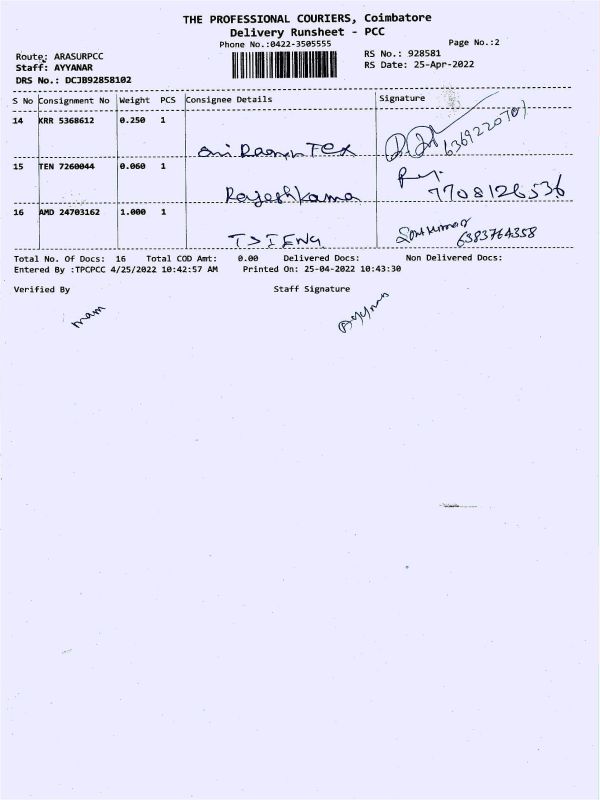 THE PROFESSIONAL COURIERS, Coimbatore
Delivery Runsheet - PCC
Phone No.:0422-3505555
Page No.:2
Route: ARASURPCC
RS No.: 928581
Staff: AYYANAR
RS Date: 25-Apr-2022
DRS No.: DCJB92858102
S No Consignment No Weight PCS Consignee Details Signature
14 KRR 5368612 0.250 1
Tex
6369220701
15 TEN 7260044 0.060 1
Rajeshkama
7708126536
16 AMD 24703162 1.000 1
6383764358
Total No. Of Docs: 16 Total COD Amt: 0.00 Delivered Docs: Non Delivered Docs:
Entered By :TPCPCC 4/25/2022 10:42:57 AM Printed On: 25-04-2022 10:43:30
Verified By Staff Signature
mam